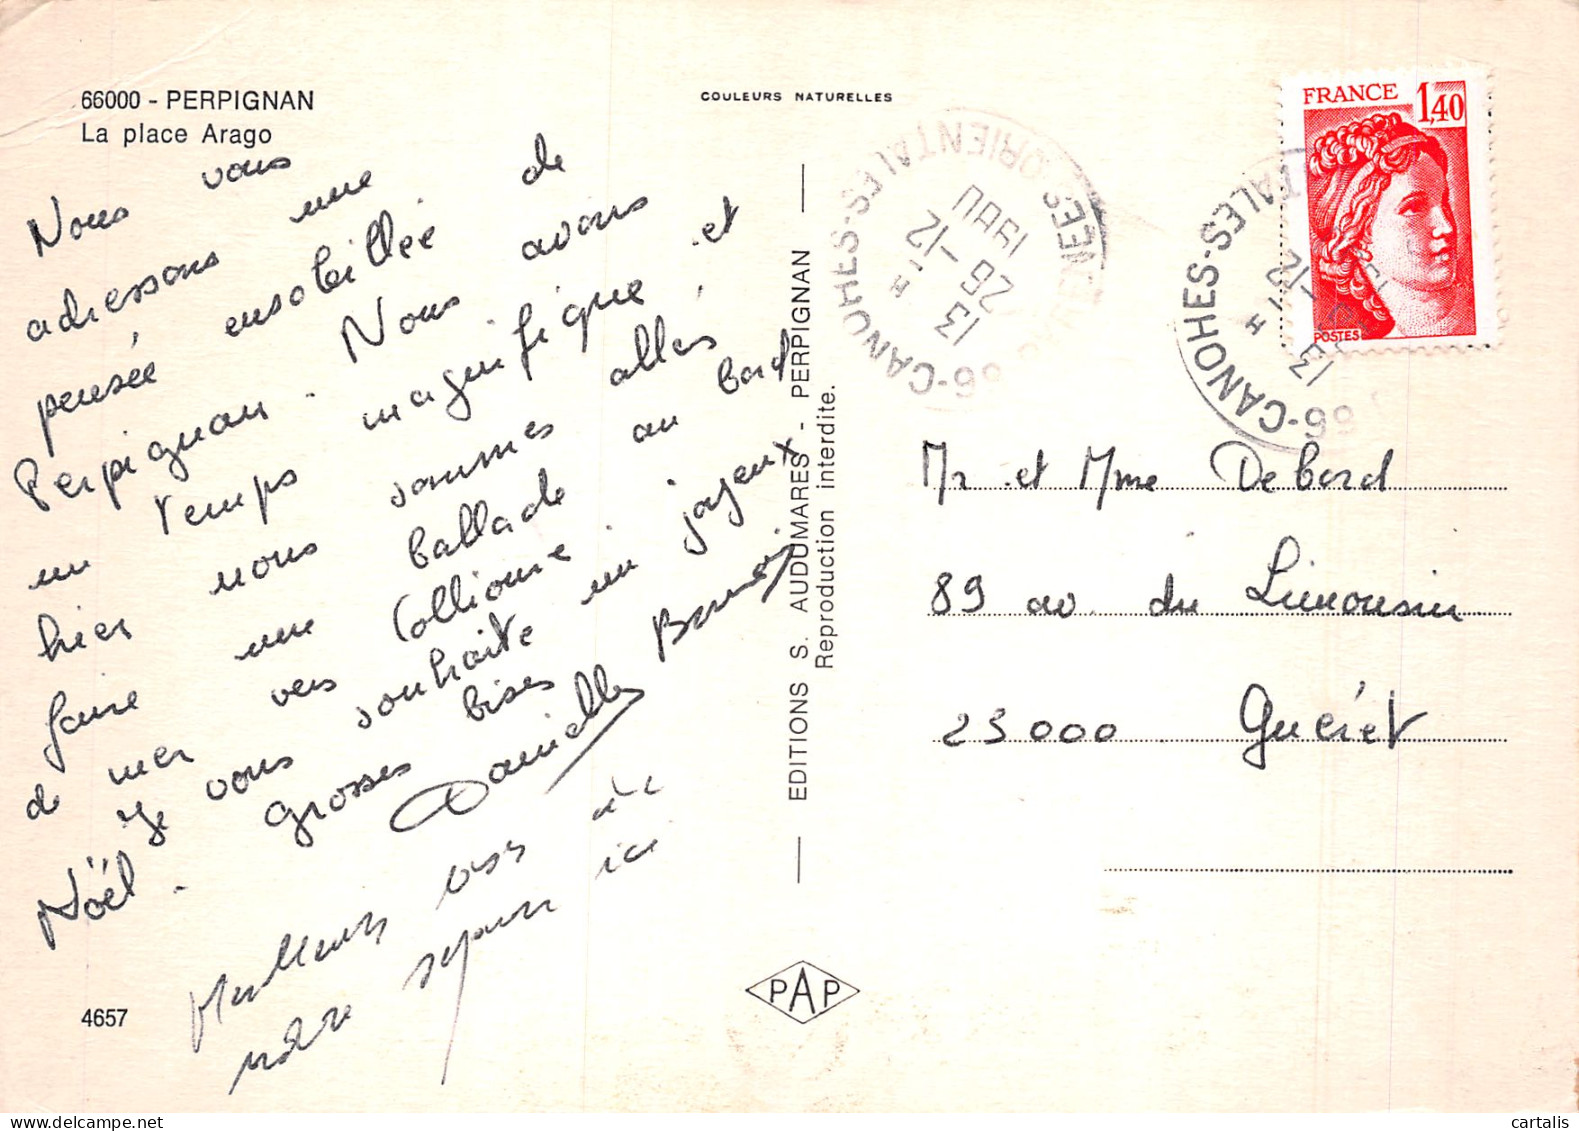 66000 - PERPIGNAN
La place Arago
COULEURS NATURELLES
Nous vous
adressons une
pensée ensoleillée de
Perpignan. Nous avons
un temps magnifique et
hier nous sommes allés
faire une ballade au bord
de mer vers Collioure
Je vous souhaite un joyeux
Noël. grosses bises
Danielle
Meilleurs
notre séjour ici
4657
EDITIONS S. AUDUMARES - PERPIGNAN
Reproduction interdite.
PAP
66-CANOHES-PYRENEES-ORIENTALES
13 H
26-12
1980
FRANCE 1,40
POSTES
66-CANOHES
13 H
-12
Mr et Mme Debord
89 av. du Limousin
23000 Guéret
cartalis